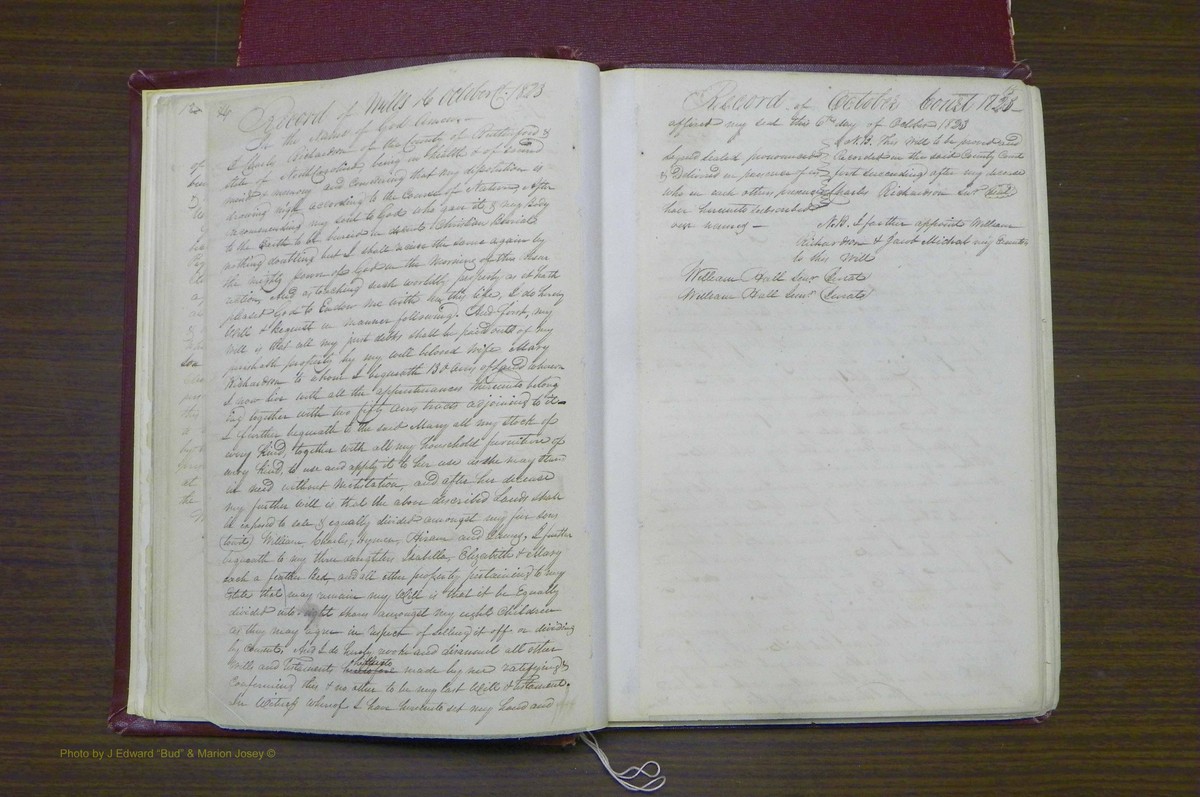 94
Record of Wills &c October Ct 1823
In the Name of God Amen
I Charles Richardson of the County of Rutherford &
State of North Carolina, being in health & of sound
mind & memory and Considering that my desolution is
drawing nigh according to the Course of Nature, After
recommending my soul to God who gave it & my Body
to the Earth to be buried in decent Christian Burial
nothing doubting but I shall receive the same again by
the mighty power of God in the Morning of the Resur
rection, And as touching such worldly property as it hath
pleased God to Endow me with in this life, I do hereby
Will & bequest in manner following. And first, my
Will is that all my just debts shall be paid out of my
perishable property by my well beloved Wife Mary
Richardson to whom I bequeath 130 acres of Land whereon
I now live with all the appurtenances thereunto belong
ing together with two fifty acres tracts adjoining to it
I further bequeath to the said Mary all my stock of
every kind, together with all my household furniture of
every kind, to use and apply it to her use as she may stand
in need without hesitation, and after her decease
my further will is that the above described Lands shall
be exposed to sale & equally divided amongst my five sons
(towit) William, Charles, Hiram and I further
bequeath to my three daughters Isabella, Elizabeth & Mary
each a feather Bed, and all other property pertaining to my
State that may remain my Will is that it be Equally
divided into eight shares amongst my eight Children
as they may agree in respect of selling it off or dividing
by Consent; And I do hereby revoke and disannul all other
Wills and testaments heretofore made by me ratifying &
Confirming this & no other to be my last Will & testament.
In Witness whereof I have hereunto set my hand and
Record of October Court 1823
affixed my seal this 6th day of October 1823
Signed sealed pronounced
& Delivered in presence of us
who in each others presence
have hereunto subscribed
our names
N.B. This will to be proved and
Recorded in the said County Court
next succeeding after my decease
Charles Richardson Senr Seal
N.B. I further appoint William
Richardson & Jacob Michal my Exectrs
to this Will
William Hall Senr Jurat
William Hall Junr Jurat
Photo by J Edward "Bud" & Marion Josey ©